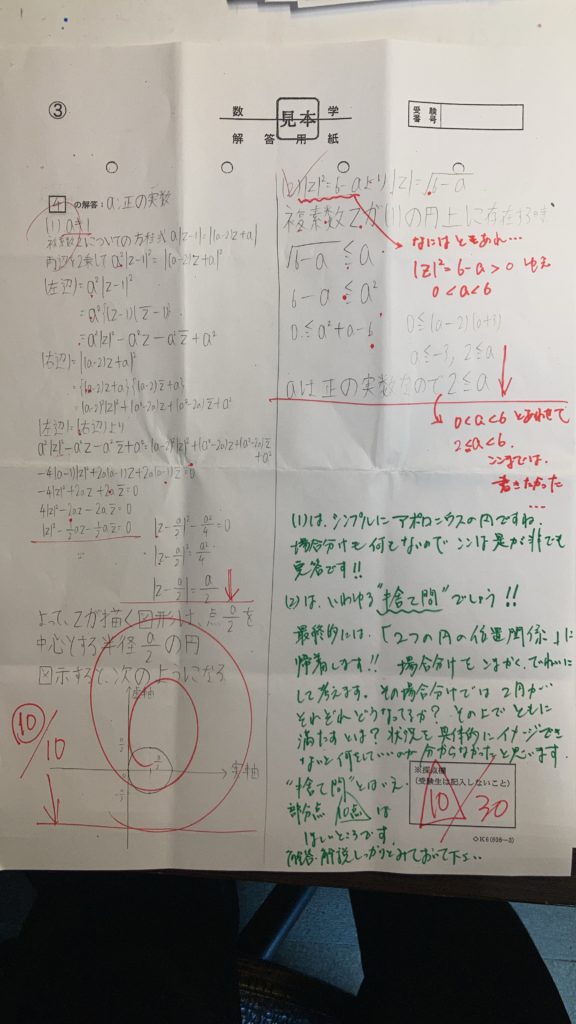 ③
数学
見本
解答用紙
受験番号
4 の解答: a:正の実数
(1) a≠1
複素数zについての方程式 a|z-1|=|(a-2)z+a|
両辺を2乗して a²|z-1|²=|(a-2)z+a|²
(左辺)=a²|z-1|²
=a²(z-1)(z̄-1)
=a²|z|²-a²z-a²z̄+a²
(右辺)=|(a-2)z+a|²
={(a-2)z+a}{(a-2)z̄+a}
=(a-2)²|z|²+(a²-2a)z+(a²-2a)z̄+a²
(左辺)=(右辺)より
a²|z|²-a²z-a²z̄+a²=(a-2)²|z|²+(a²-2a)z+(a²-2a)z̄+a²
-4|z|²+2az+2az̄=0
4|z|²-2az-2az̄=0
|z|²-½az-½az̄=0
|z-a/2|²-a²/4=0
|z-a/2|²=a²/4
|z-a/2|=a/2
よって、zが描く図形は、点a/2を
中心とする半径a/2の円
図示すると、次のようになる
虚軸
a/2
a/2
実軸
-a/2
10/10
(2) |z|²=6-aより |z|=√6-a
複素数zが(1)の円上に存在する時
√6-a ≦ a
6-a ≦ a²
0≦a²+a-6
0≦(a-2)(a+3)
a≦-3, 2≦a
aは正の実数なので 2≦a
なにはともあれ…
|z|²=6-a>0 ゆえ
0<a<6
0<a<6 とあわせて
2≦a<6.
ここまでは、
書きたかった
…
(1)は、シンプルにアポロニウスの円ですね.
場合分けも何もないので ここは是が非でも
完答です!!
(2)は、いわゆる"捨て問"でしょう!!
最終的には、「2つの円の位置関係」に
帰着します!! 場合分けをこまかく、ていねいに
して考えます。その場合分けでは2円が…
それぞれどうなってるか? その上でともに
満たすとは? 状況を具体的にイメージでき
ないと何をしていいのか分からなかったと思います.
"捨て問"とはいえ.
部分点 10点は
ほしいところです.
解答・解説しっかりとみておいて下さい.
※採点欄
(受験生は記入しないこと)
10/30
◇K6(696—3)